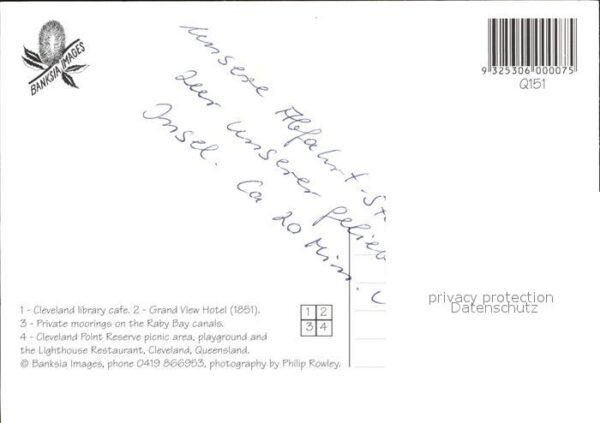 BANKSIA IMAGES
9 325306 000075
Q151
Unsere Abfahrt-St
zur unserer gelieb
Insel. Ca 20 Min.
privacy protection
Datenschutz
1 - Cleveland library cafe. 2 - Grand View Hotel (1851).
3 - Private moorings on the Raby Bay canals.
4 - Cleveland Point Reserve picnic area, playground and
the Lighthouse Restaurant, Cleveland, Queensland.
© Banksia Images, phone 0419 866953, photography by Philip Rowley.
1 2
3 4